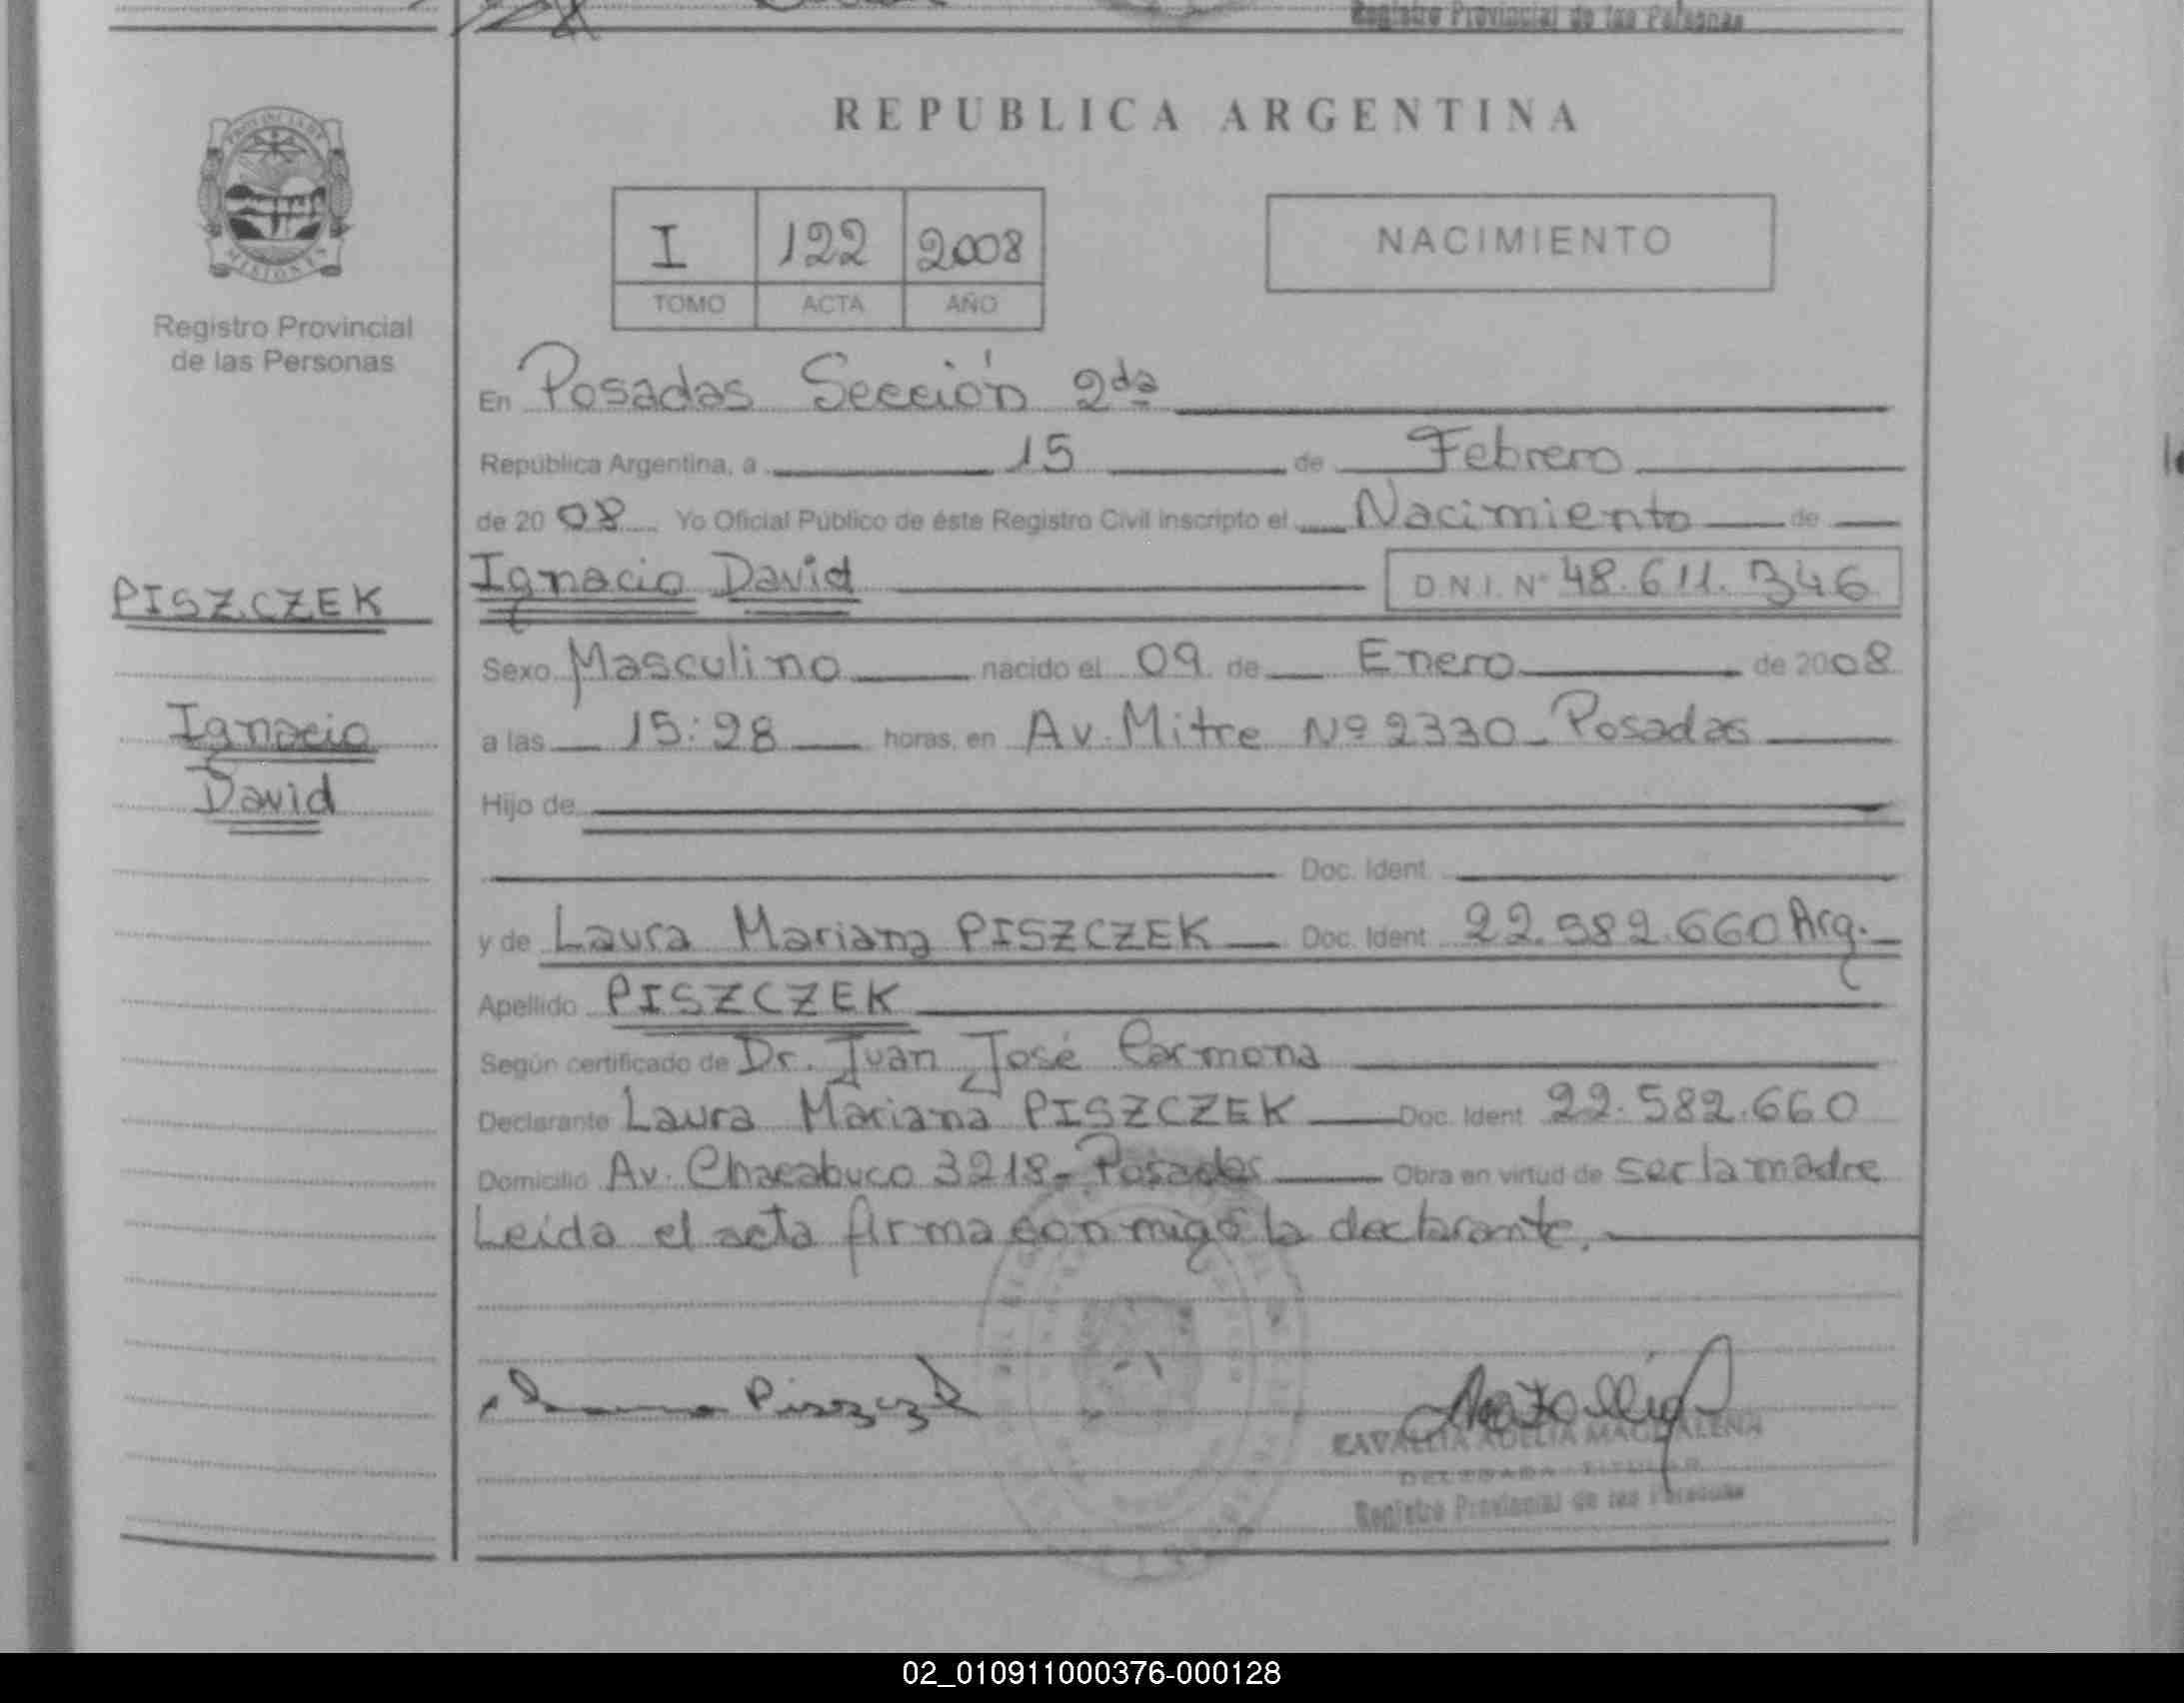 Registro Provincial de las Personas
REPUBLICA ARGENTINA
PROVINCIA DE
MISIONES
Registro Provincial
de las Personas
I 122 2008
TOMO ACTA AÑO
NACIMIENTO
En Posadas Sección 2da
República Argentina, a 15 de Febrero
de 2008 Yo Oficial Público de éste Registro Civil inscripto el Nacimiento de
PISZCZEK
Ignacio David D.N.I. Nº 48.611.346
Sexo Masculino nacido el 09 de Enero de 2008
Ignacio
a las 15:28 horas, en Av. Mitre Nº 2330 - Posadas
David
Hijo de
Doc. Ident.
y de Laura Mariana PISZCZEK Doc. Ident 22.582.660 Arg.
Apellido PISZCZEK
Según certificado de Dr. Juan José Carmona
Declarante Laura Mariana PISZCZEK Doc. Ident 22.582.660
Domicilio Av. Chacabuco 3218 - Posadas Obra en virtud de ser la madre
Leída el acta firma conmigo la declarante.
Piszczek
ADELIA MAGDALENA
DELEGADA TITULAR
Registro Provincial de las Personas
02_010911000376-000128